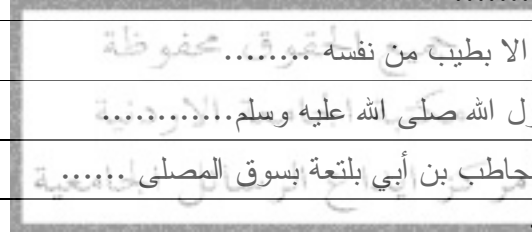 الا بطيب من نفسه ........
ل الله صلى الله عليه وسلم............
حاطب بن أبي بلتعة بسوق المصلى ......